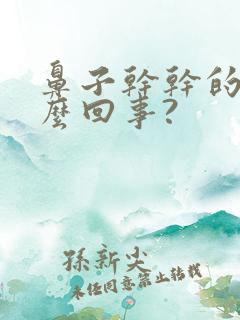 鼻子幹幹的
麼回事?
孫新尖
未经同意禁止转载